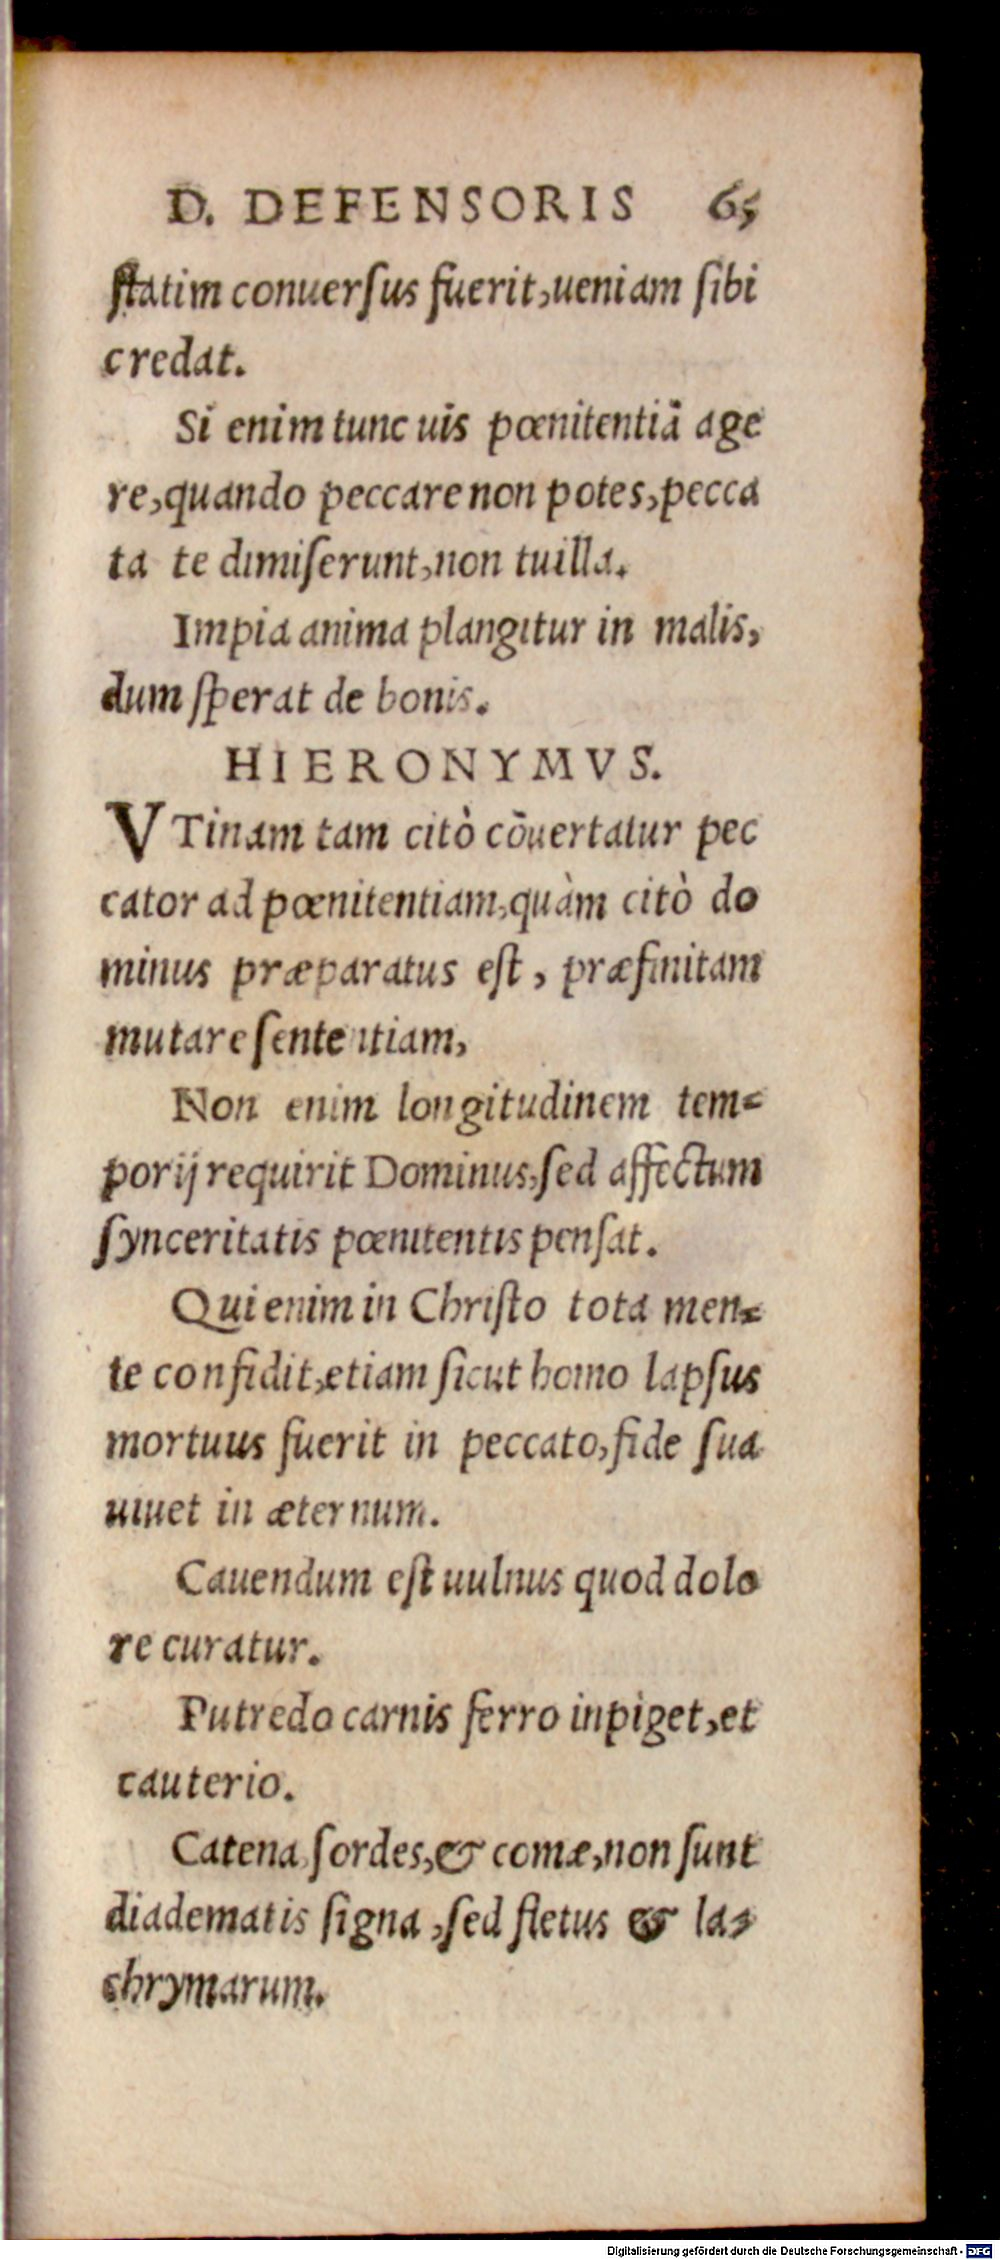 D. DEFENSORIS 65
ſtatim conuerſus fuerit, ueniam ſibi
credat.
Si enim tunc uis pœnitentiā age
re, quando peccare non potes, pecca
ta te dimiſerunt, non tu illa.
Impia anima plangitur in malis,
dum ſperat de bonis.
HIERONYMVS.
VTinam tam citò cōuertatur pec
cator ad pœnitentiam, quàm citò do
minus præparatus eſt, præfinitam
mutare ſententiam,
Non enim longitudinem tem-
porij requirit Dominus, ſed affectum
ſynceritatis pœnitentis penſat.
Qui enim in Chriſto tota men-
te confidit, etiam ſicut homo lapſus
mortuus fuerit in peccato, fide ſua
uiuet in æternum.
Cauendum eſt uulnus quod dolo
re curatur.
Putredo carnis ferro inpiget, et
cauterio.
Catena ſordes, & comæ, non ſunt
diadematis ſigna, ſed fletus & la-
chrymarum.
Digitalisierung gefördert durch die Deutsche Forschungsgemeinschaft - DFG